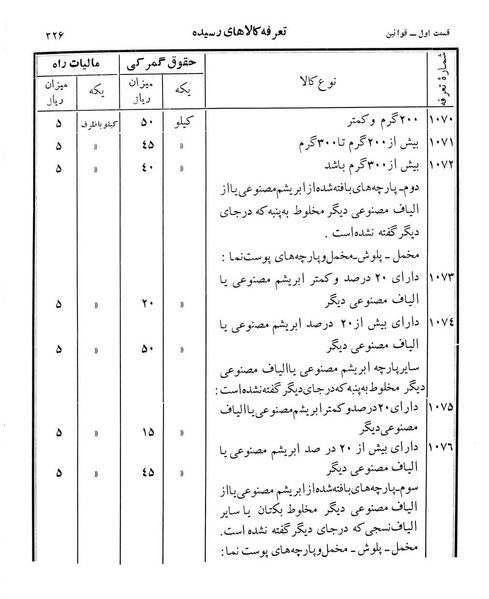 قسمت اول ــ قوانین تعرفه کالاهای رسیده ۳۲۶
شمارهٔ تعرفه نوع کالا حقوق گمرکی مالیات راه
یکه میزان ریال یکه میزان ریال
۱۰۷۰ ۲۰۰ گرم و کمتر کیلو ۵۰ کیلو باظرف ۵
۱۰۷۱ بیش از ۲۰۰ گرم تا ۳۰۰ گرم » ۴۵ » ۵
۱۰۷۲ بیش از ۳۰۰ گرم باشد » ۴۰ » ۵
دوم ـ پارچه‌های بافته شده از ابریشم مصنوعی یا از
الیاف مصنوعی دیگر مخلوط به پنبه که در جای
دیگر گفته نشده است .
مخمل ـ پلوش ـ مخمل و پارچه‌های پوست نما :
۱۰۷۳ دارای ۲۰ درصد و کمتر ابریشم مصنوعی یا
الیاف مصنوعی دیگر » ۲۰ » ۵
۱۰۷۴ دارای بیش از ۲۰ درصد ابریشم مصنوعی یا
الیاف مصنوعی دیگر » ۵۰ » ۵
سایر پارچه ابریشم مصنوعی یا الیاف مصنوعی
دیگر مخلوط به پنبه که در جای دیگر گفته نشده است :
۱۰۷۵ دارای ۲۰ درصد و کمتر ابریشم مصنوعی یا الیاف
مصنوعی دیگر » ۱۵ » ۵
۱۰۷۶ دارای بیش از ۲۰ در صد ابریشم مصنوعی یا
الیاف مصنوعی دیگر » ۴۵ » ۵
سوم ـ پارچه‌های بافته شده از ابریشم مصنوعی یا از
الیاف مصنوعی دیگر مخلوط بکتان یا سایر
الیاف نسجی که در جای دیگر گفته نشده است.
مخمل ـ پلوش ـ مخمل و پارچه‌های پوست نما :